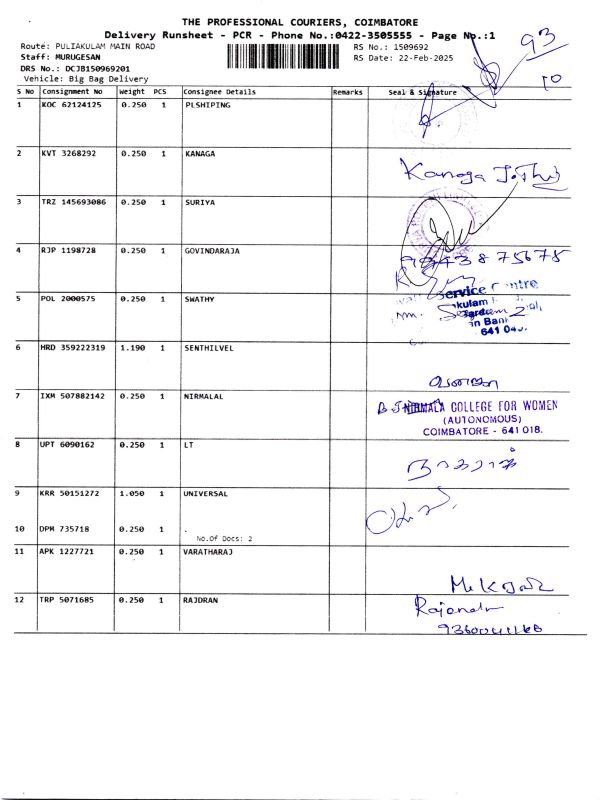 THE PROFESSIONAL COURIERS, COIMBATORE
Delivery Runsheet - PCR - Phone No.:0422-3505555 - Page No.:1
93
10
Route: PULIAKULAM MAIN ROAD
RS No.: 1509692
Staff: MURUGESAN
RS Date: 22-Feb-2025
DRS No.: DCJB150969201
Vehicle: Big Bag Delivery
S No Consignment No Weight PCS Consignee Details Remarks Seal & Signature
1 KOC 62124125 0.250 1 PLSHIPING
2 KVT 3268292 0.250 1 KANAGA
Kanaga
3 TRZ 145693086 0.250 1 SURIYA
4 RJP 1198728 0.250 1 GOVINDARAJA
875678
5 POL 2000575 0.250 1 SWATHY
Service
kulam
641 04
6 HRD 359222319 1.190 1 SENTHILVEL
7 IXM 507882142 0.250 1 NIRMALAL
NIRMALA COLLEGE FOR WOMEN
(AUTONOMOUS)
COIMBATORE - 641 018.
8 UPT 6090162 0.250 1 LT
9 KRR 50151272 1.050 1 UNIVERSAL
10 DPM 735718 0.250 1 .
No.Of Docs: 2
11 APK 1227721 0.250 1 VARATHARAJ
12 TRP 5071685 0.250 1 RAJDRAN